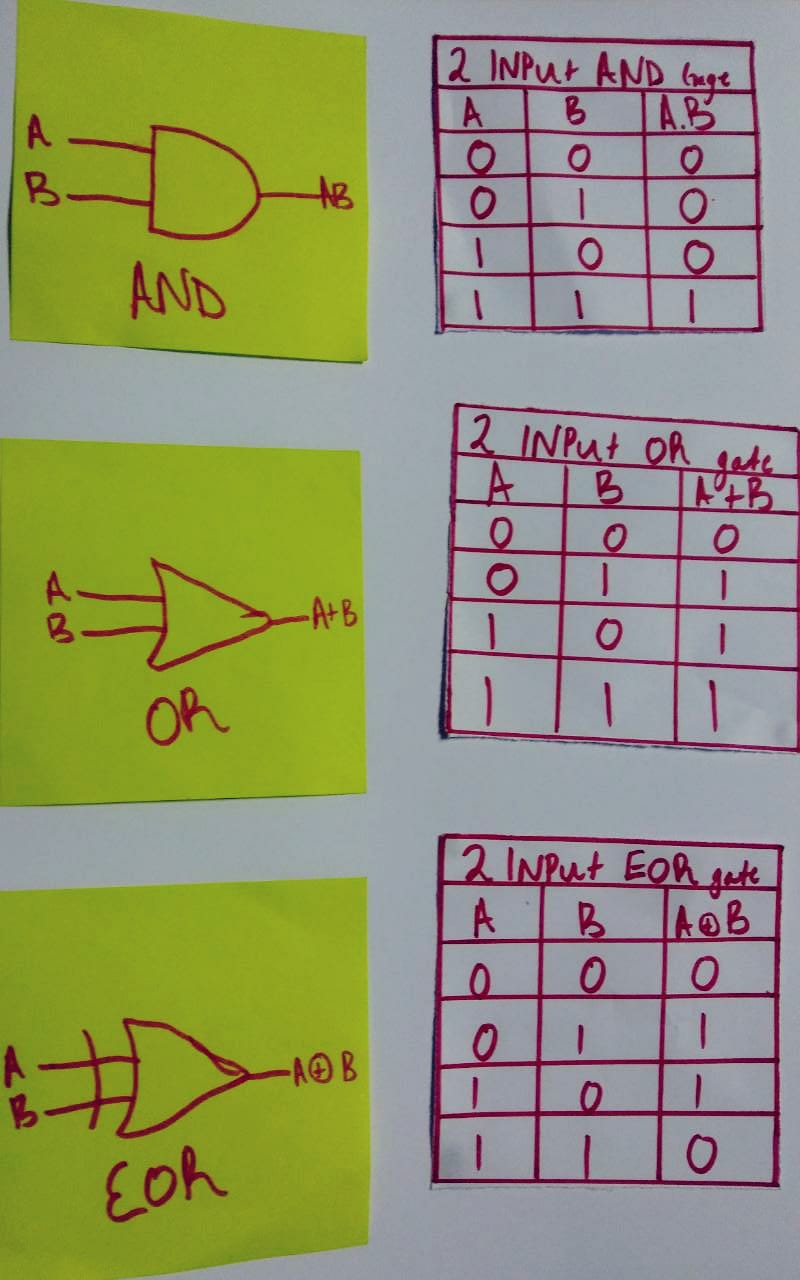 A
B
AB
AND
2 INPut AND Gage
A B A.B
0 0 0
0 1 0
1 0 0
1 1 1
A
B
A+B
OR
2 INPut OR gate
A B A+B
0 0 0
0 1 1
1 0 1
1 1 1
A
B
A⊕B
EOR
2 INPut EOR gate
A B A⊕B
0 0 0
0 1 1
1 0 1
1 1 0